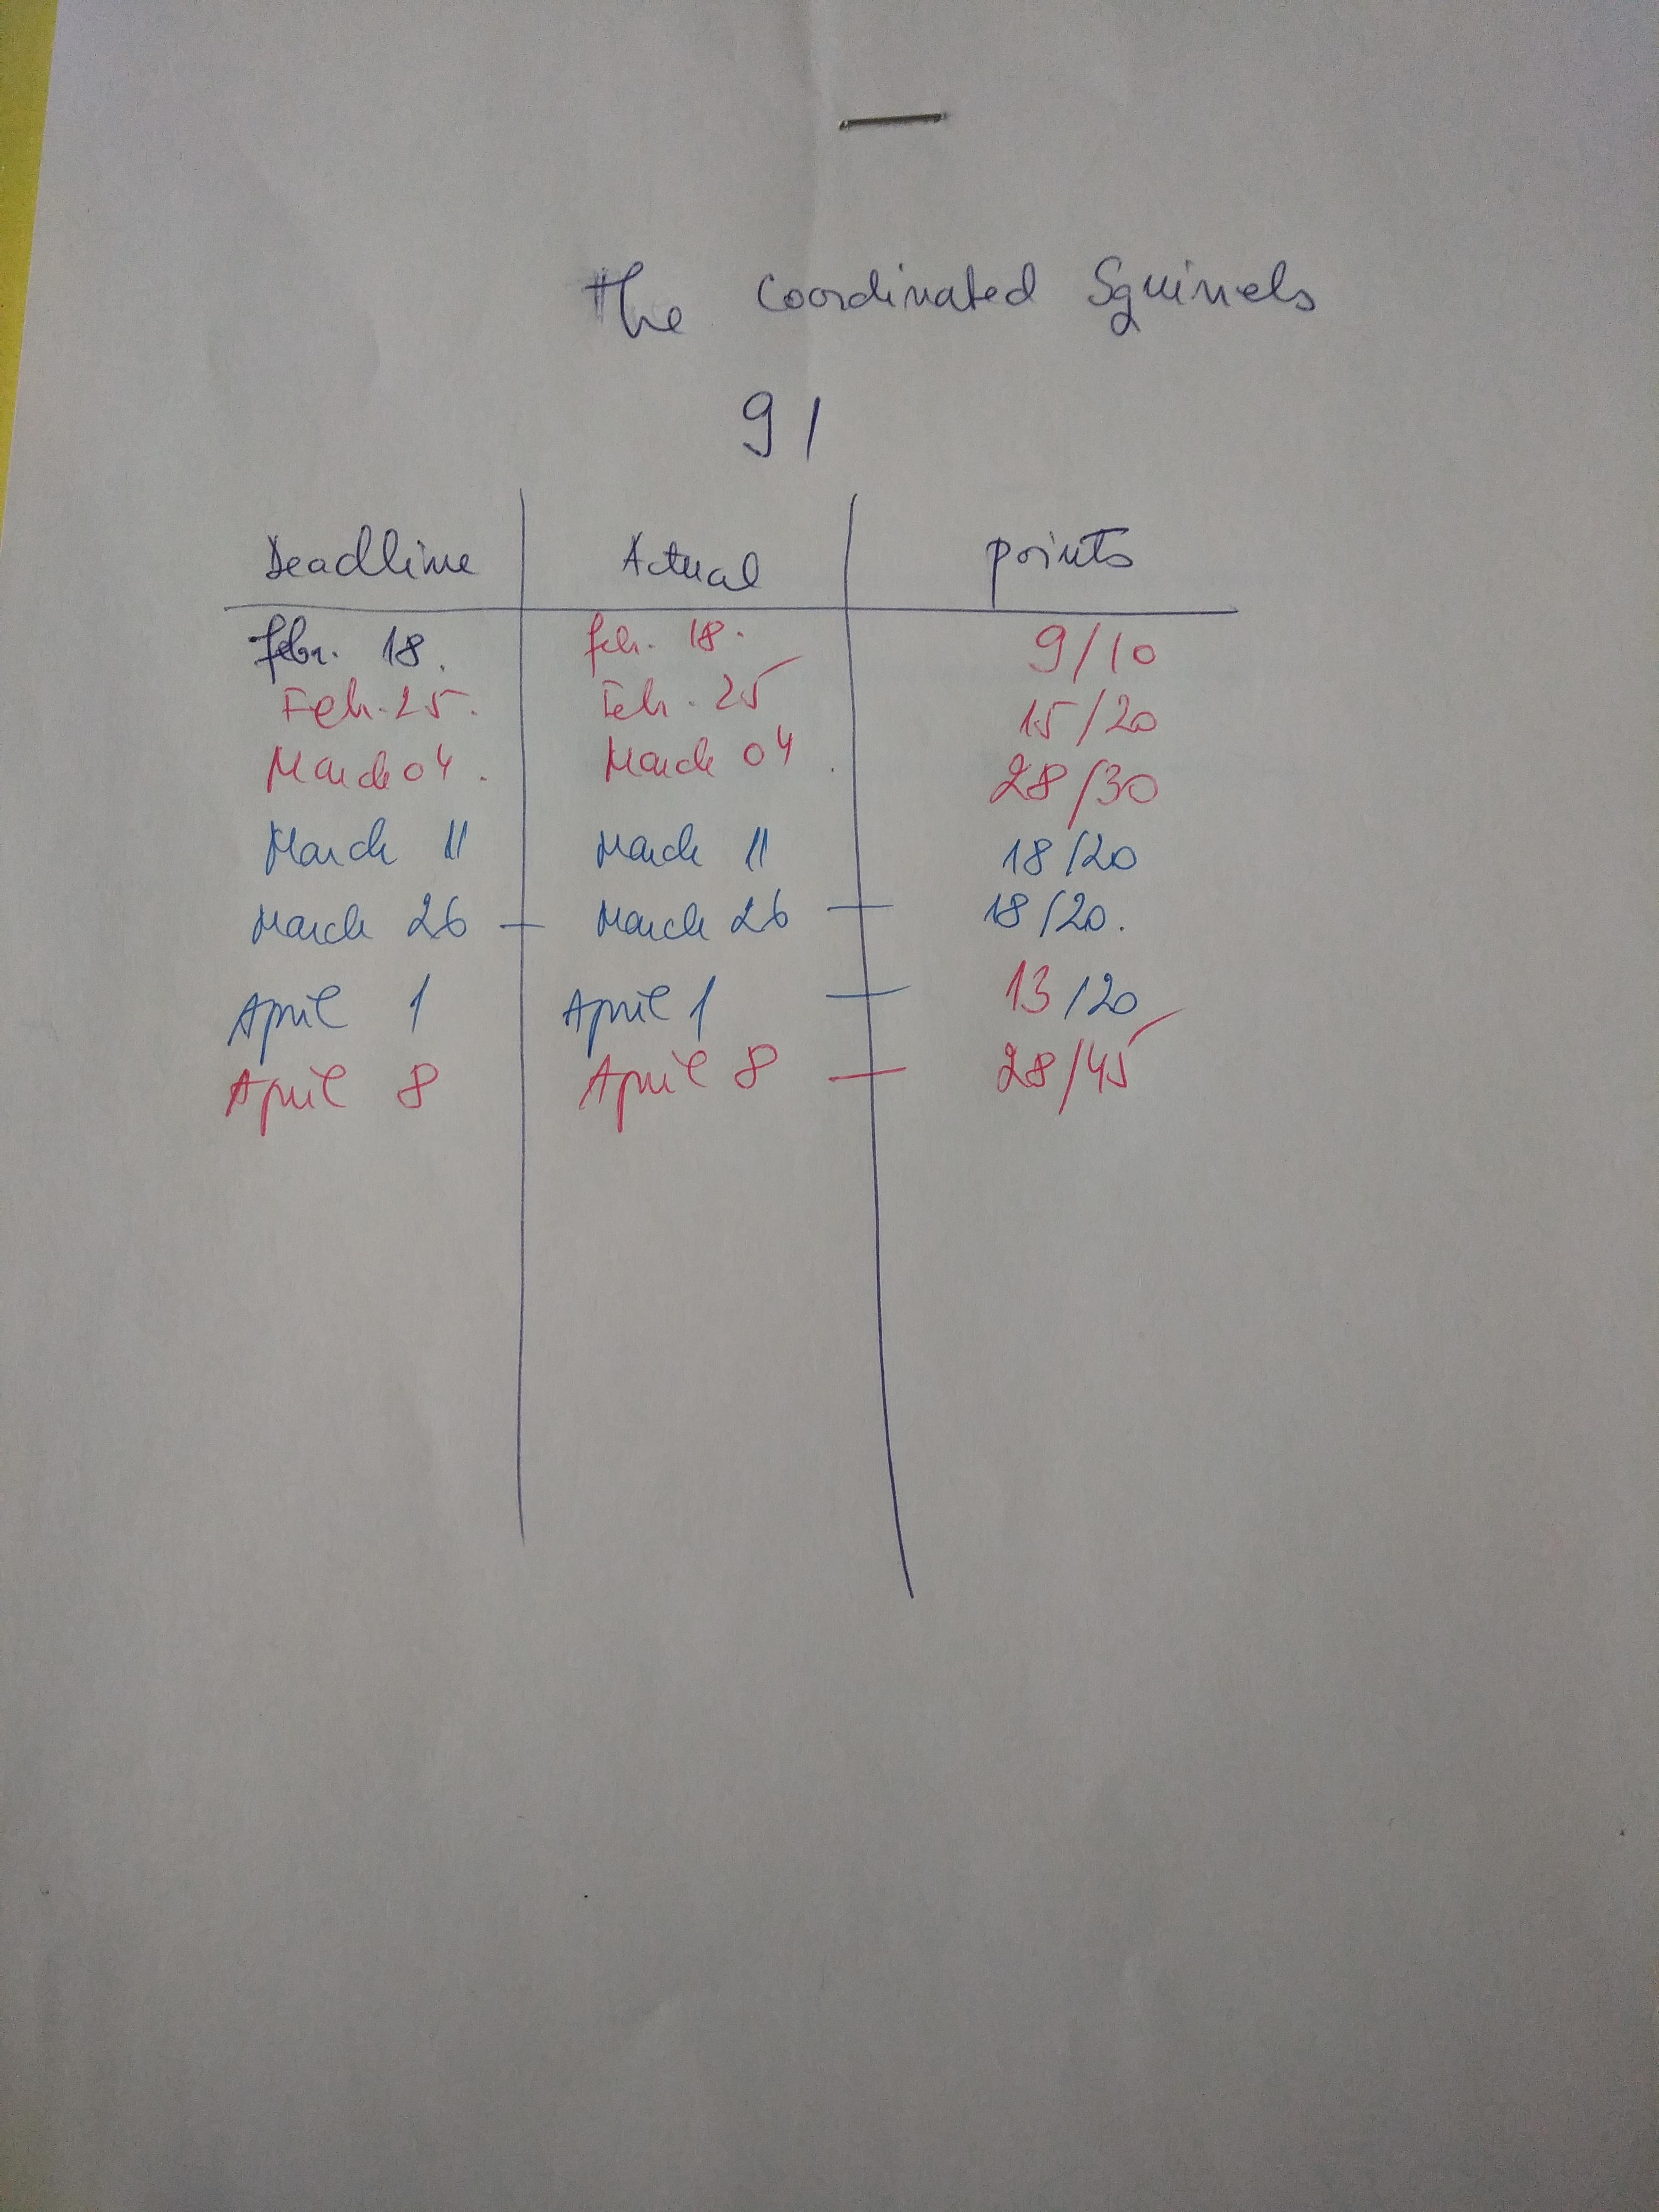 the Coordinated Squirrels
91
Deadline Actual points
Febr. 18. Feb. 18. 9/10
Feb. 25. Feb. 25 15/20
March 04. March 04. 28/30
March 11 March 11 18/20
March 26 - March 26 - 18/20.
April 1 April 1 - 13/20
April 8 April 8 - 28/45